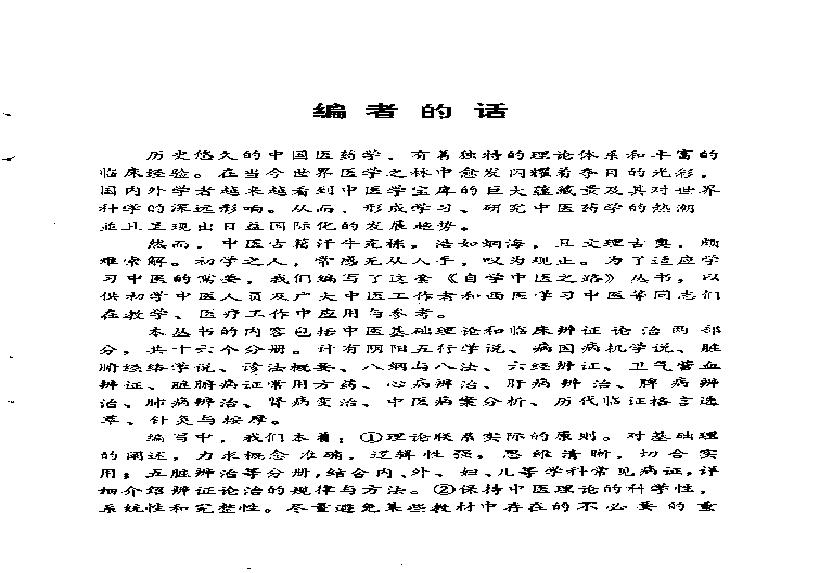 编者的话
历史悠久的中国医药学，有着独特的理论体系和丰富的
临床经验。在当今世界医学之林中愈发闪耀着夺目的光彩，
国内外学者越来越看到中医学宝库的巨大蕴藏量及其对世界
科学的深远影响。从而，形成学习、研究中医药学的热潮
并且呈现出日益国际化的发展趋势。
然而，中医古籍汗牛充栋，浩如烟海，且文理古奥，颇
难索解。初学之人，常感无从入手，叹为观止。为了适应学
习中医的需要，我们编写了这套《自学中医之路》丛书，以
供初学中医人员及广大中医工作者和西医学习中医等同志们
在教学、医疗工作中应用与参考。
本丛书的内容包括中医基础理论和临床辨证论治两部
分，共十六个分册。计有阴阳五行学说、病因病机学说、脏
腑经络学说、诊法概要、八纲与八法、六经辨证、卫气营血
辨证、脏腑病证常用方药、心病辨治、肝病辨治、脾病辨
治、肺病辨治、肾病变治、中医病案分析、历代临证格言选
萃、针灸与按摩。
编写中，我们本着：①理论联系实际的原则。对基础理
的阐述，力求概念准确，逻辑性强，思维清晰，切合实
用；五脏辨治等分册，结合内、外、妇、儿等学科常见病证，详
细介绍辨证论治的规律与方法。②保持中医理论的科学性，
系统性和完整性。尽量避免某些教材中存在的不必要的重